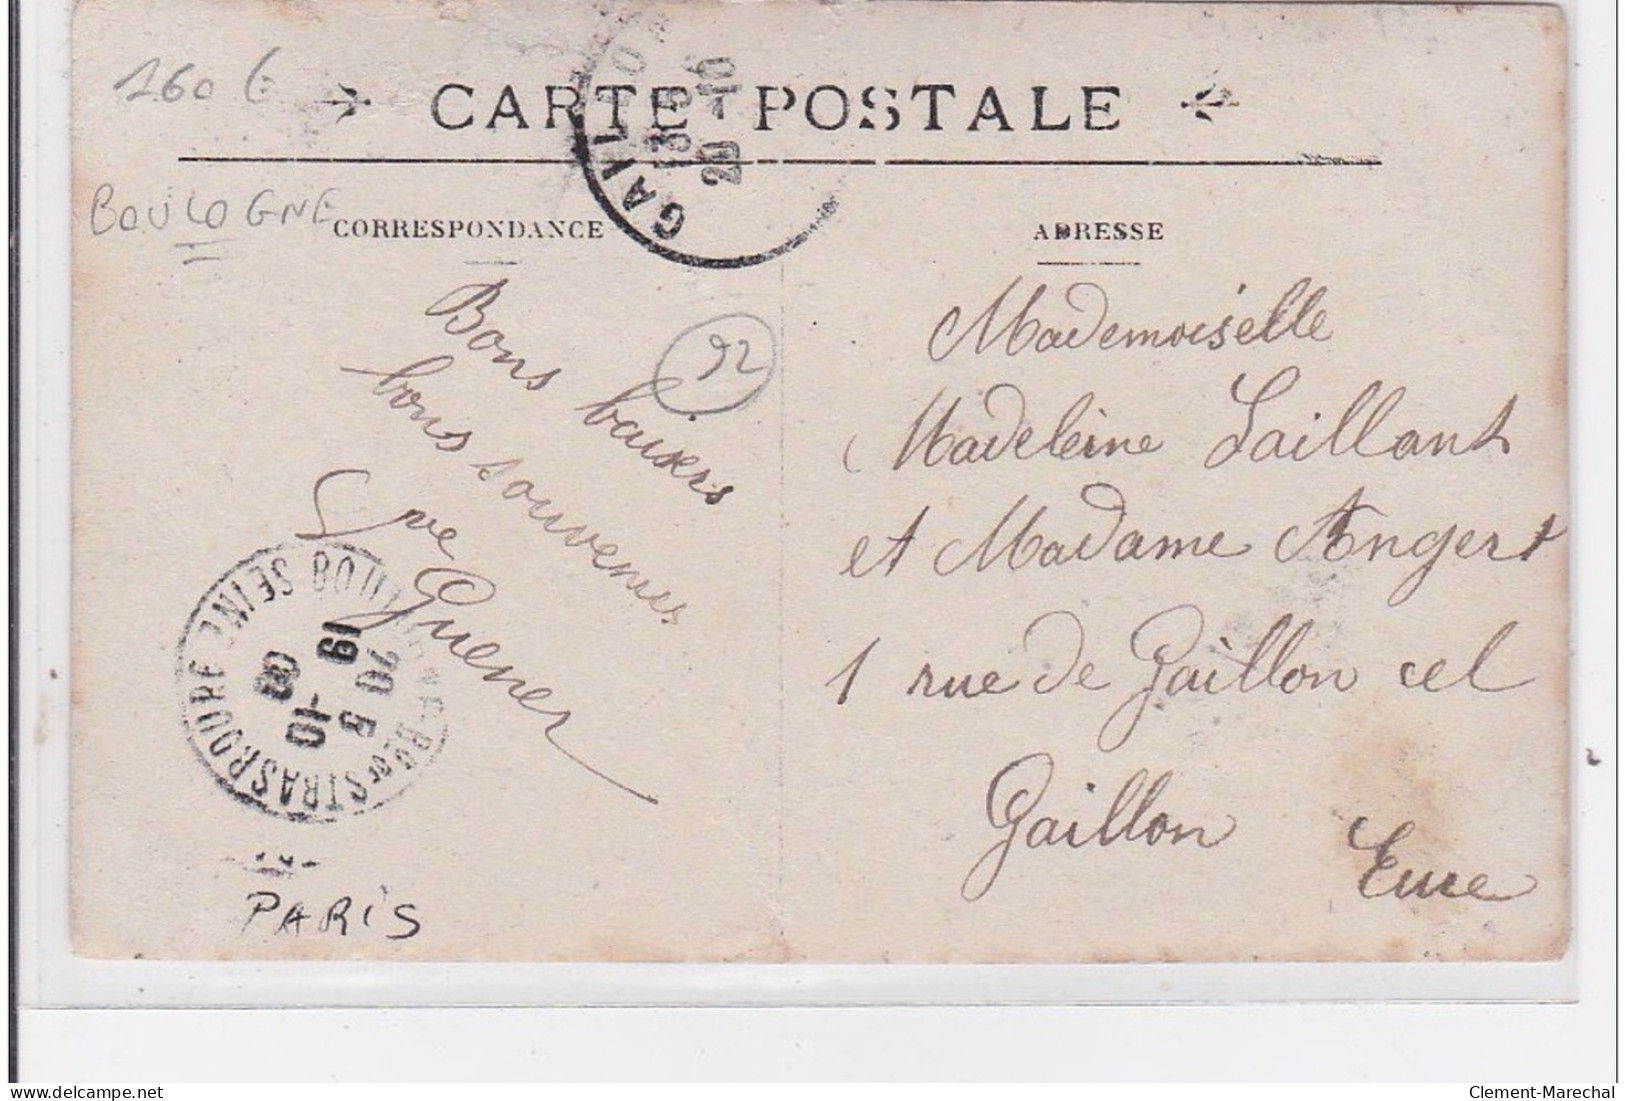 160 €
CARTE POSTALE
BOULOGNE
CORRESPONDANCE
ADRESSE
GAILLO
13 15
20 -10
92
Bons baisers
bons souvenirs
Vve Guener
Mademoiselle
Madeleine Laillant
et Madame Angert
1 rue de Gaillon cel
Gaillon
Eure
BOULOGNE-S-SEINE
STRASBOURG
19
20 5
-10
08
PARIS
Clement-Marechal